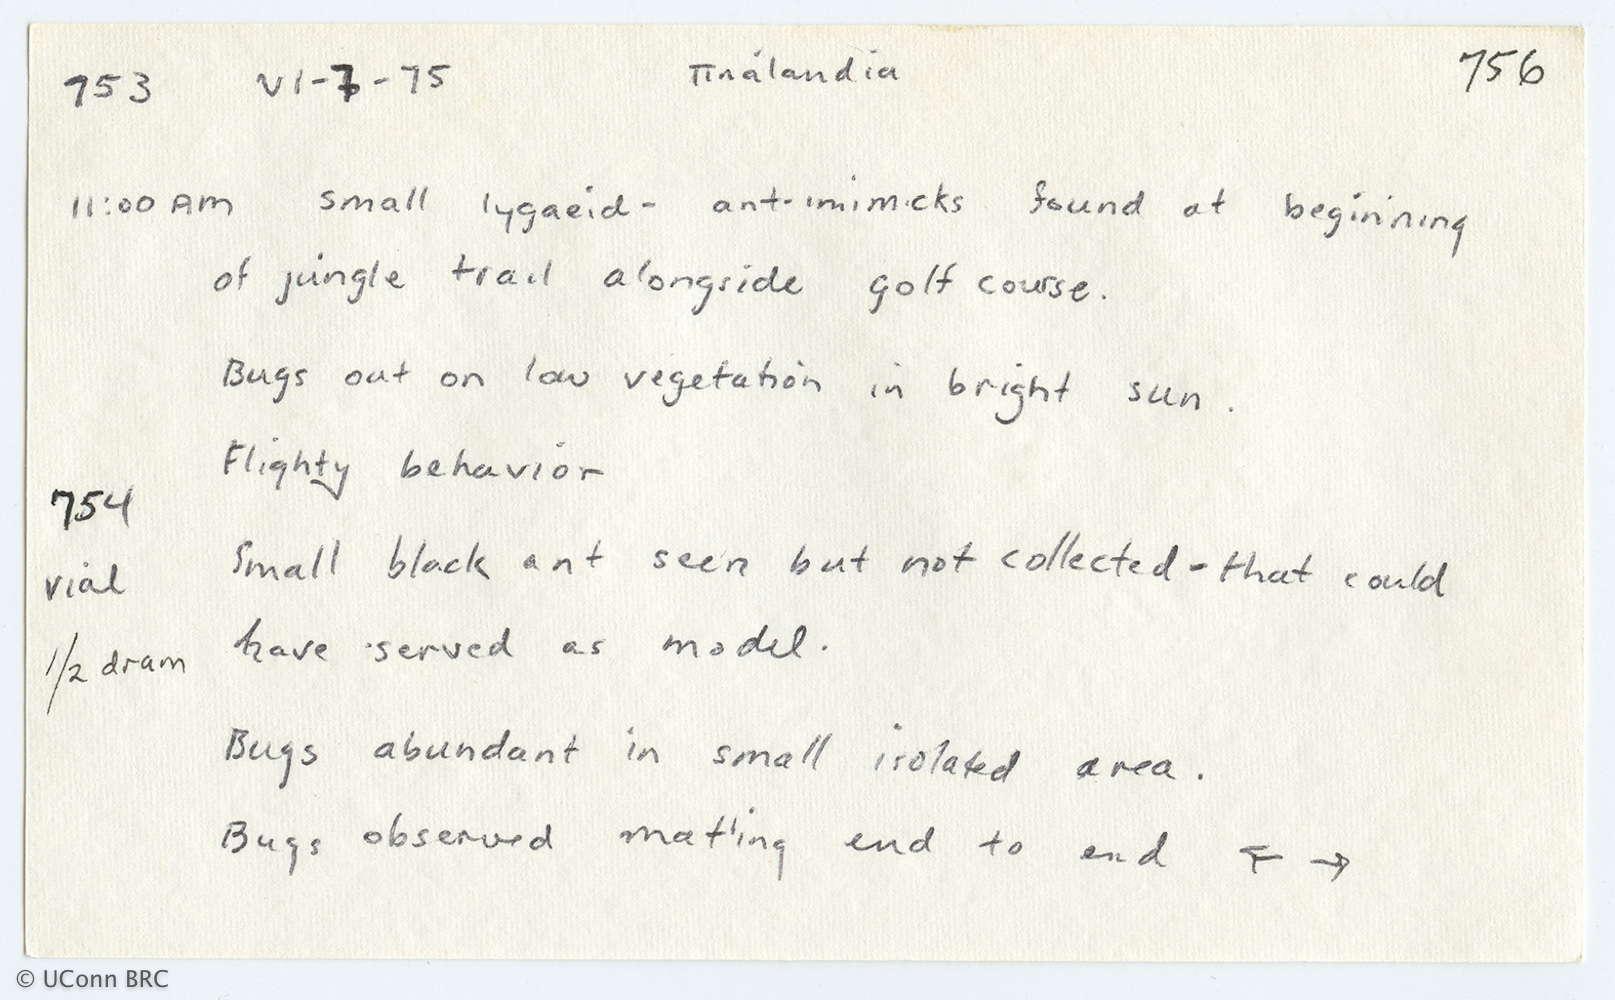 753 VI-7-75 Tinálandia 756
11:00 AM small lygaeid - ant-mimicks found at beginning
of jungle trail alongside golf course.
Bugs out on low vegetation in bright sun.
Flighty behavior
754
vial Small black ant seen but not collected - that could
1/2 dram have served as model.
Bugs abundant in small isolated area.
Bugs observed mating end to end ← →
© UConn BRC